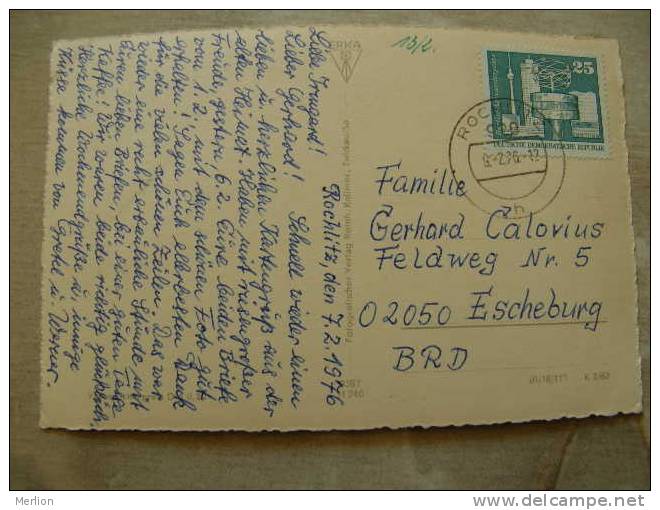 Rochlitz, den 7.2.1976
Liebe Irmgard!
Lieber Gerhard! Schnell wieder einen
lieben u. herzlichen Kartengruß aus der
alten Heimat. Haben mit riesengroßer
Freude, gestern 6.2. Eure beiden Briefe
vom 1.2. mit dem schönen Foto gut
erhalten! Sagen Euch allerbesten Dank
für die vielen schönen Zeilen. Das war
wieder eine recht erbauliche Stunde mit
Euren lieben Briefen, bei einer guten Tasse
Kaffee! Wir waren beide richtig glücklich.
Herzliche Wochenendgrüße u. innige
Küsse kommen von Gretel u. Werner.
ERKA
Fotografischer Verlag
13/2.
25
DEUTSCHE DEMOKRATISCHE REPUBLIK
ROCHLITZ
Familie
Gerhard Calovius
Feldweg Nr. 5
02050 Escheburg
BRD
K 3/62
Merlion
www.delcampe.net